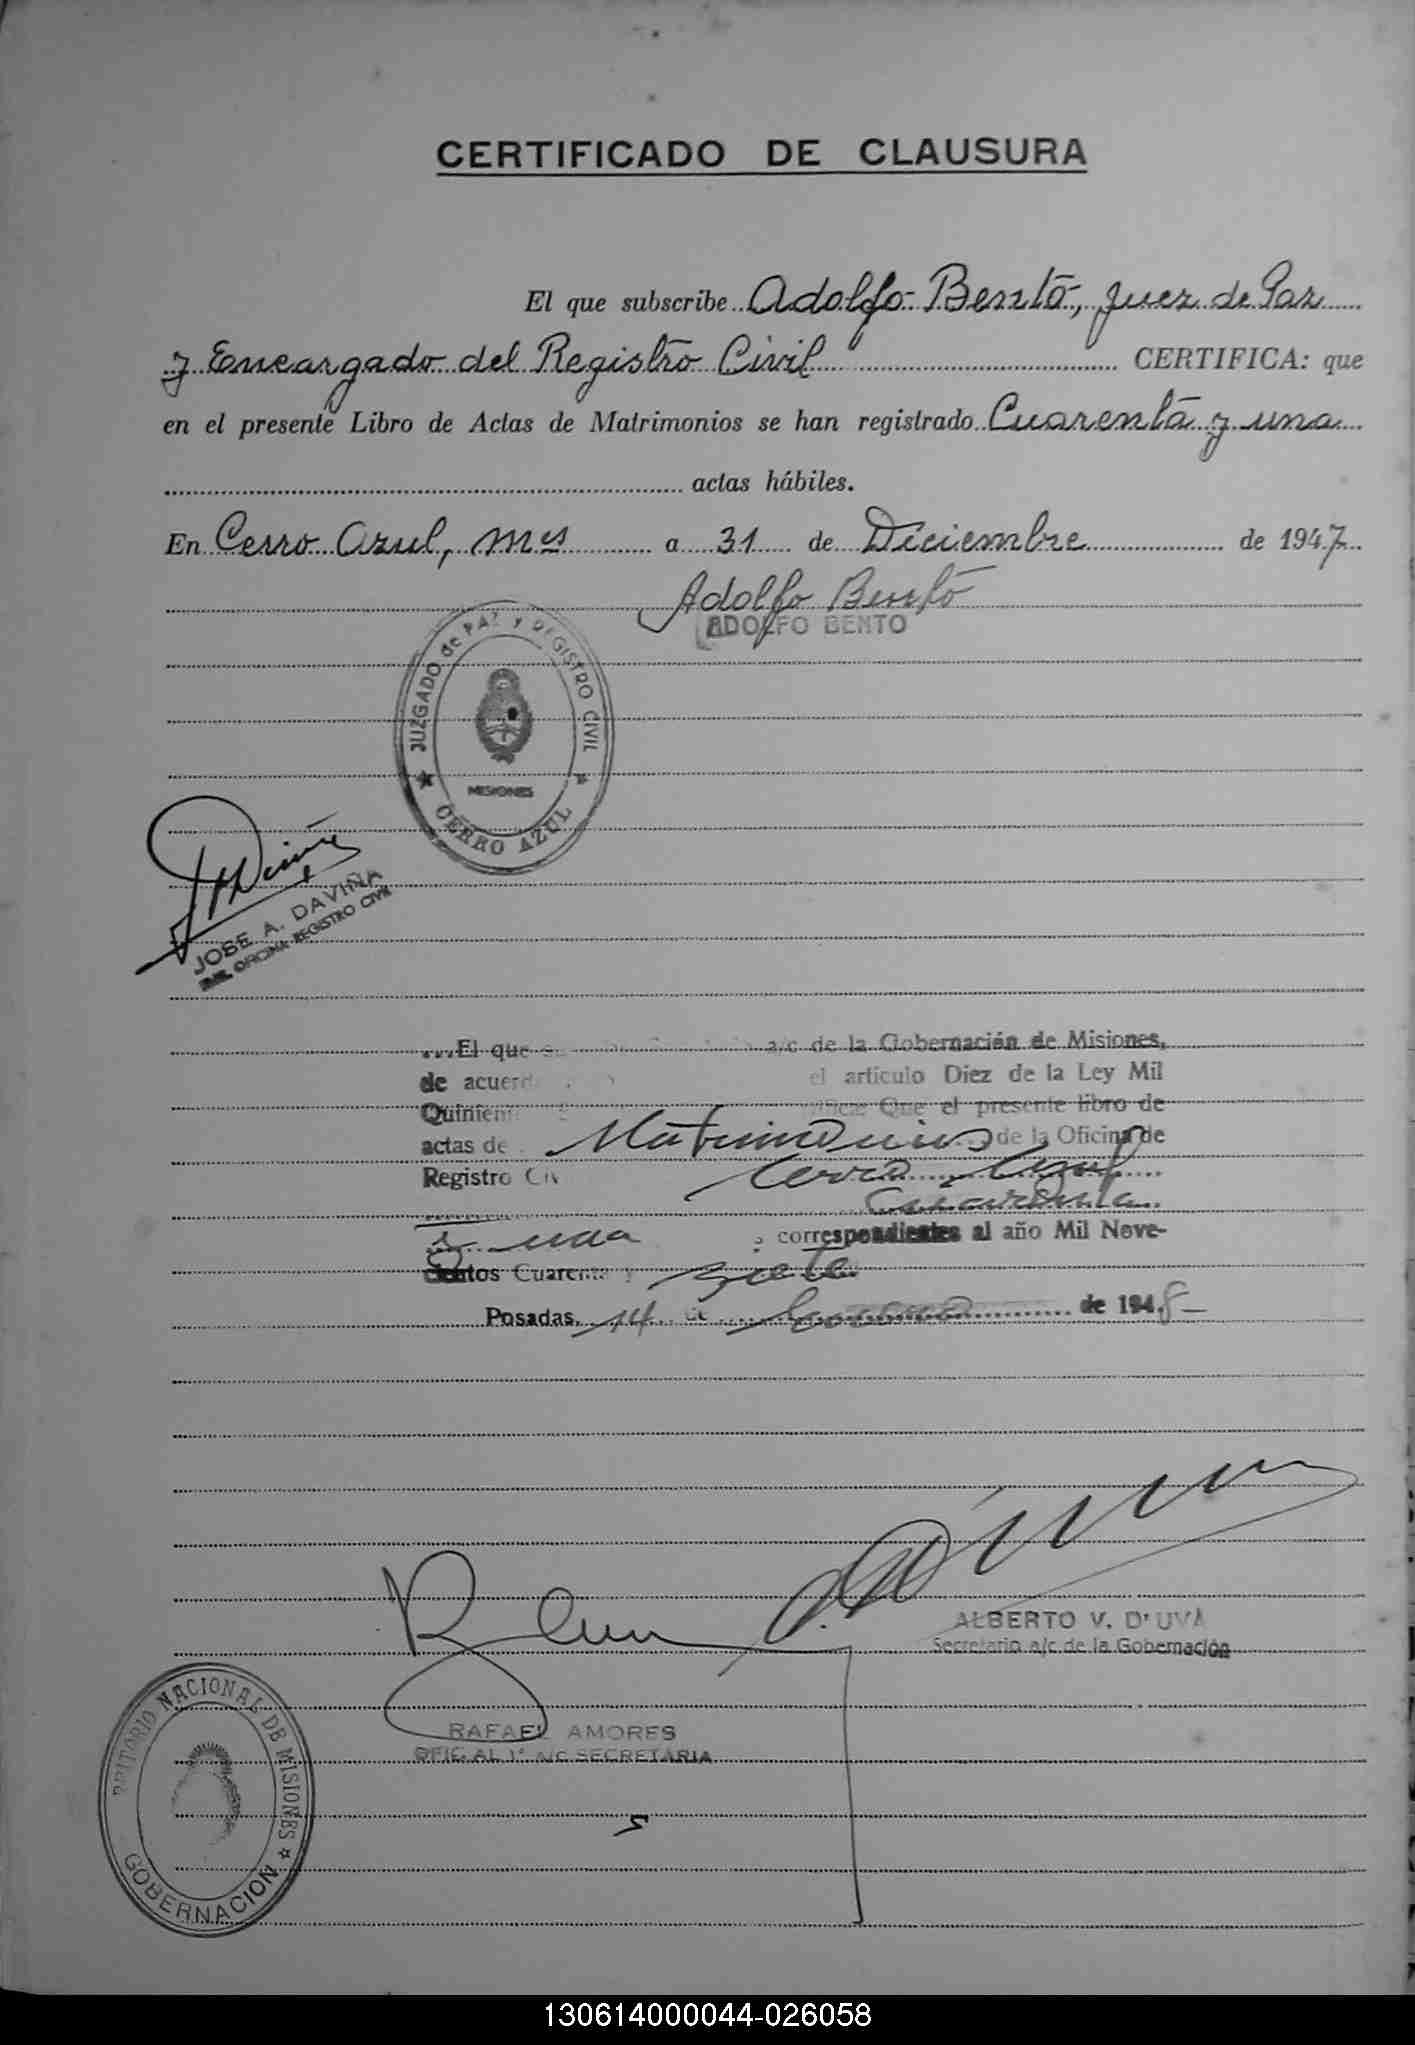 CERTIFICADO DE CLAUSURA
El que subscribe Adolfo Bento, Juez de Paz
y Encargado del Registro Civil CERTIFICA: que
en el presente Libro de Actas de Matrimonios se han registrado Cuarenta y una
actas hábiles.
En Cerro Azul, Mns a 31 de Diciembre de 1947
Adolfo Bento
ADOLFO BENTO
JUZGADO de PAZ y REGISTRO CIVIL
MISIONES
CERRO AZUL
JOSE A. DAVIÑA
OFICINA REGISTRO CIVIL
...El que a/c de la Gobernación de Misiones,
de acuerd el artículo Diez de la Ley Mil
Quinient Que el presente libro de
actas de Matrimonios de la Oficina de
Registro Civ Cerro Azul
Cuarenta
y una correspondientes al año Mil Nove-
cientos Cuarenta y siete
Posadas, 14 de de 1948
ALBERTO V. D'UVA
Secretario a/c de la Gobernación
RAFAEL AMORES
OFICIAL 1° A/C SECRETARIA
TERRITORIO NACIONAL DE MISIONES
GOBERNACION
130614000044-026058